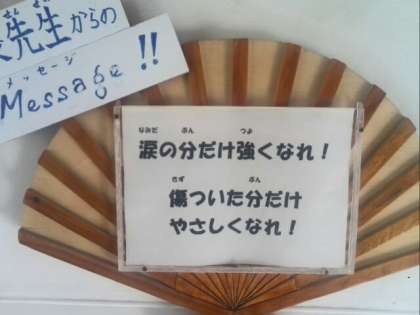 先生からの
メッセージ
Message !!
涙の分だけ強くなれ！
傷ついた分だけ
やさしくなれ！
なみだ ぶん つよ
きず ぶん